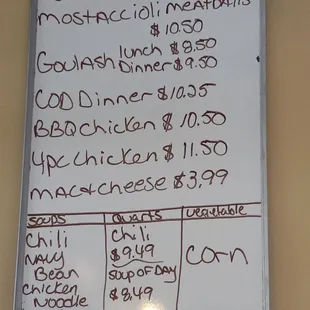 mostaccioli meatballs
$10.50
Goulash lunch $8.50
Dinner $9.50
COD Dinner $10.25
BBQ chicken $10.50
4pc chicken $11.50
mac & cheese $3.99
soups quarts vegetable
chili chili corn
navy $9.49
Bean soup of DAY
chicken $8.49
noodle